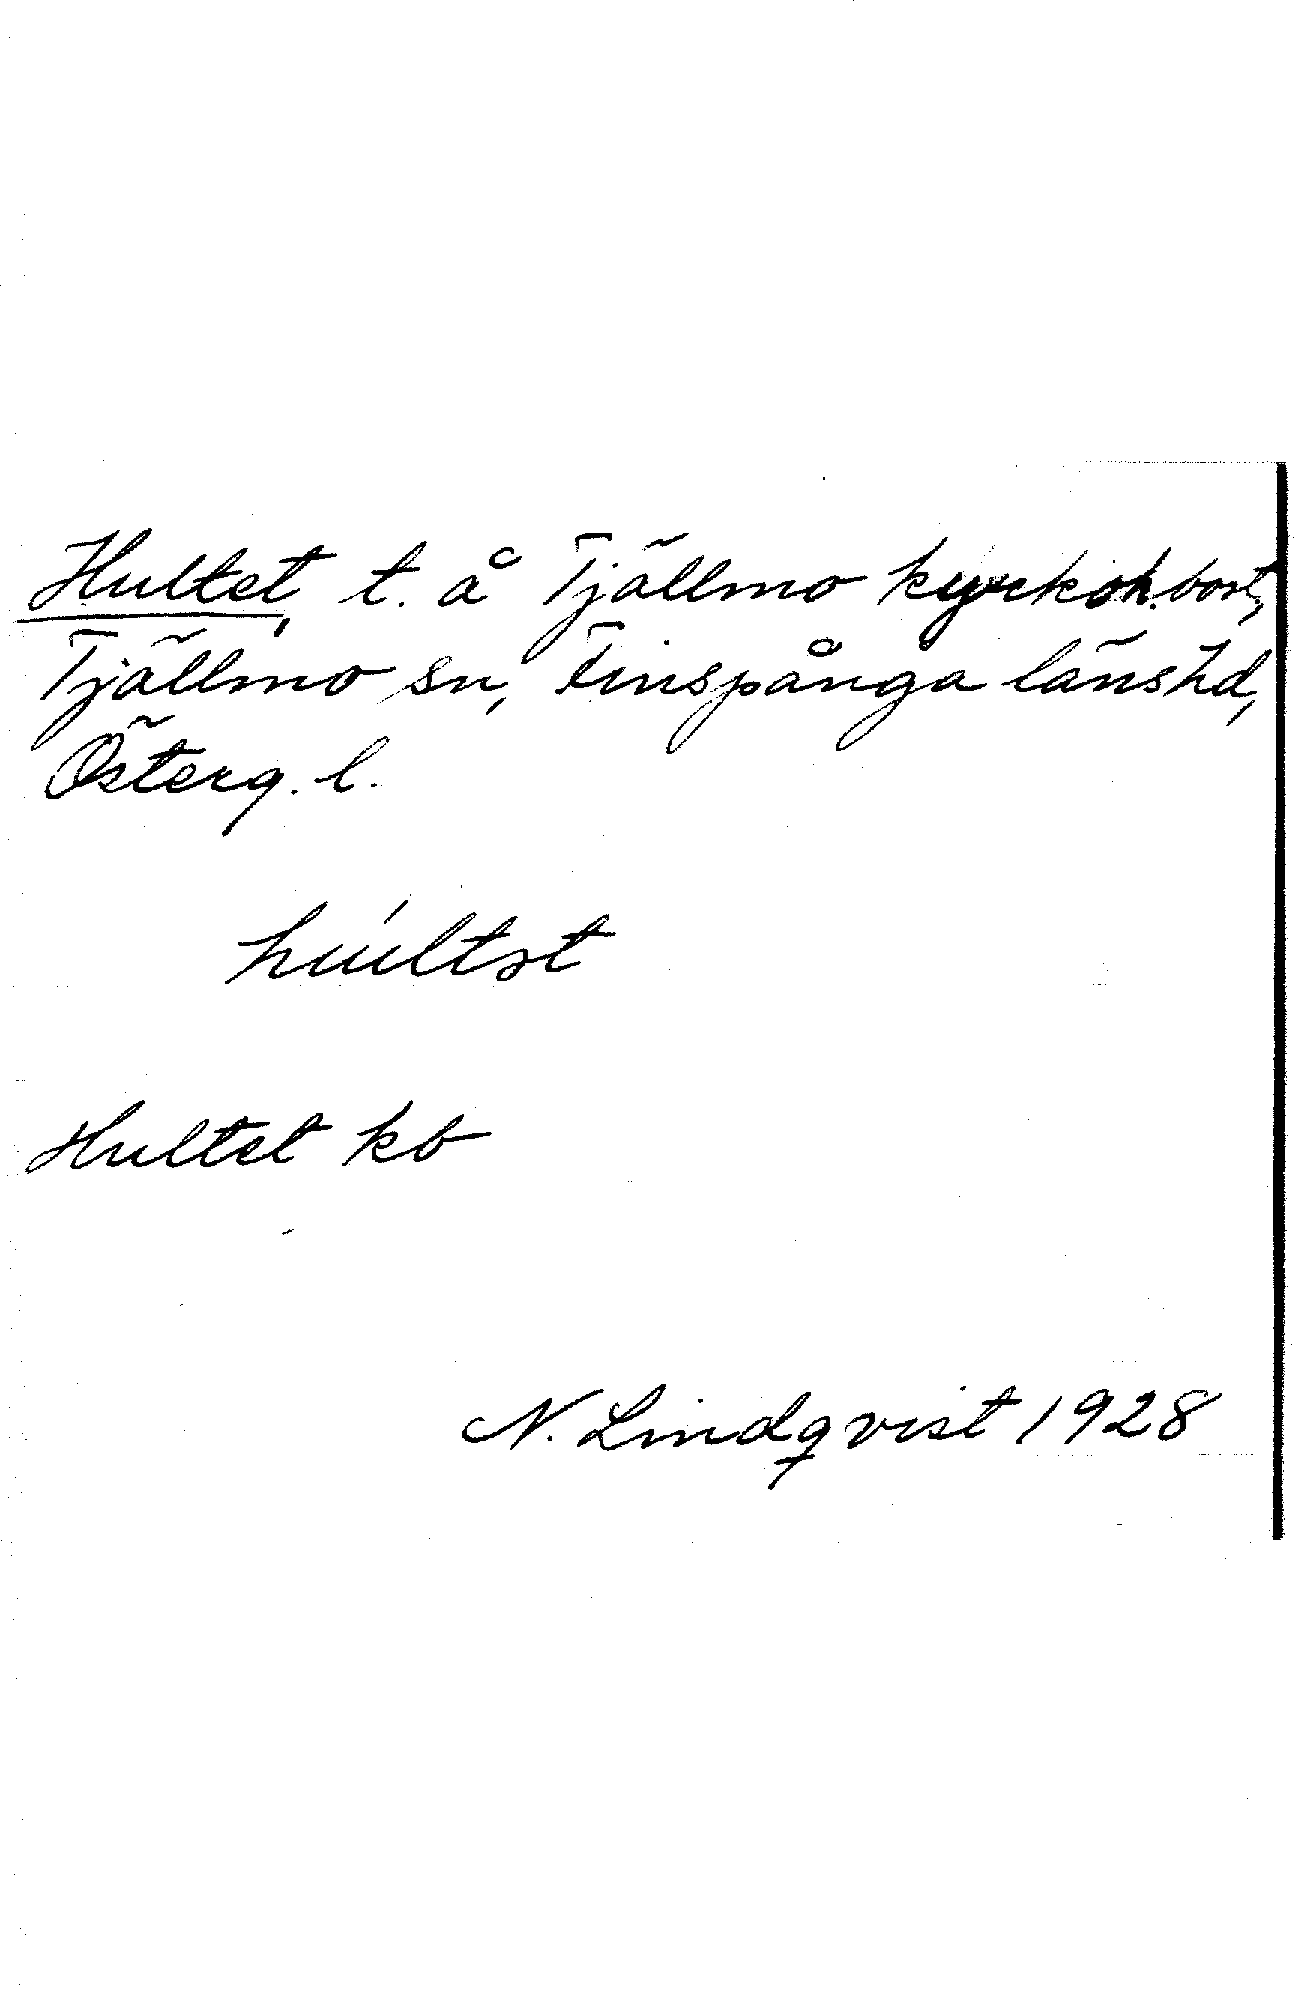 Hultet, t. å Tjällmo kyrkoh.bost,
Tjällmo sn, Finspånga länshd,
Österg. l.
húltət
Hultet kb
N. Lindqvist 1928